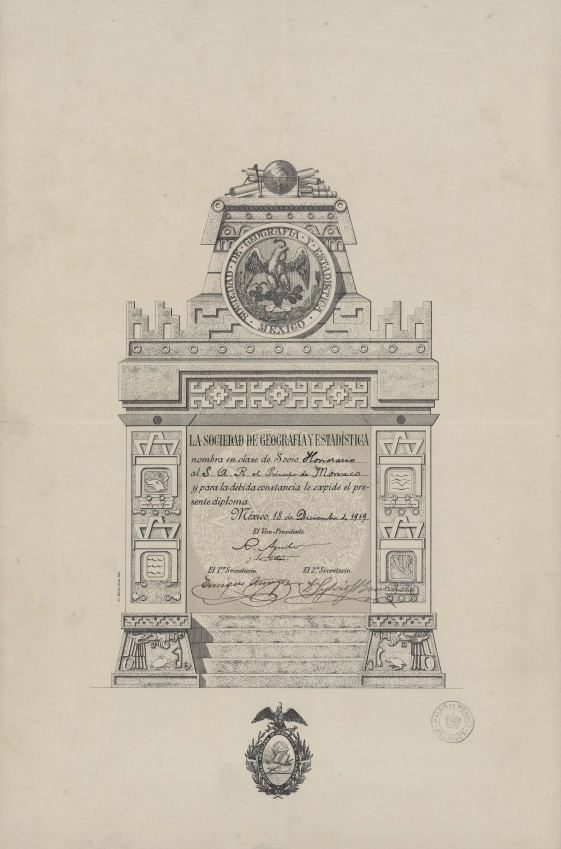 SOCIEDAD · DE · GEOGRAFIA · Y · ESTADISTICA
· MEXICO ·
LA SOCIEDAD DE GEOGRAFIA Y ESTADÍSTICA
nombra en clase de Socio Honorario
al S. A. R. el Principe de Monaco
y para la debida constancia le expide el pre-
sente diploma.
México, 18 de Diciembre de 1919
El Vice-Presidente
El 1er Secretario. El 2º Secretario.
Enrique